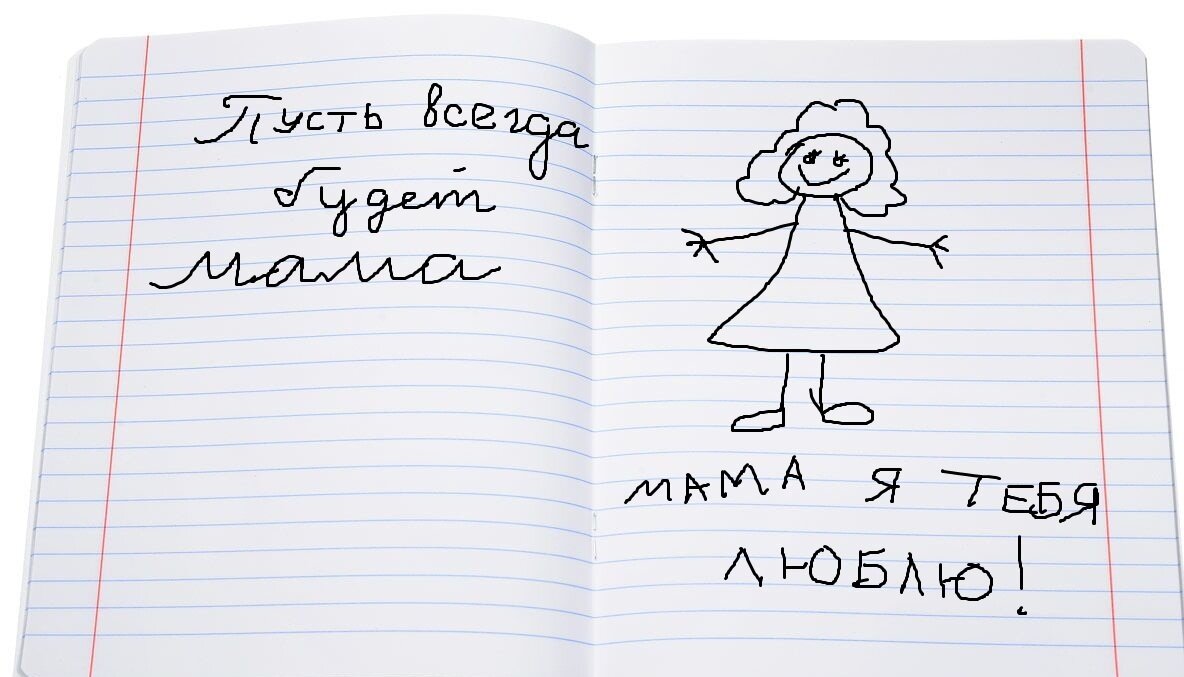 Пусть всегда
будет
мама
МАМА Я ТЕБЯ
ЛЮБЛЮ!